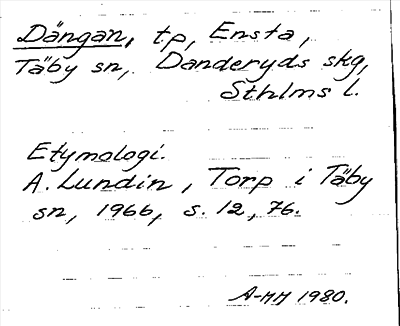 Dängan, tp, Ensta,
Täby sn, Danderyds skg,
Sthlms l.
Etymologi.
A. Lundin, Torp i Täby
sn, 1966, s. 12, 76.
A-MH 1980.